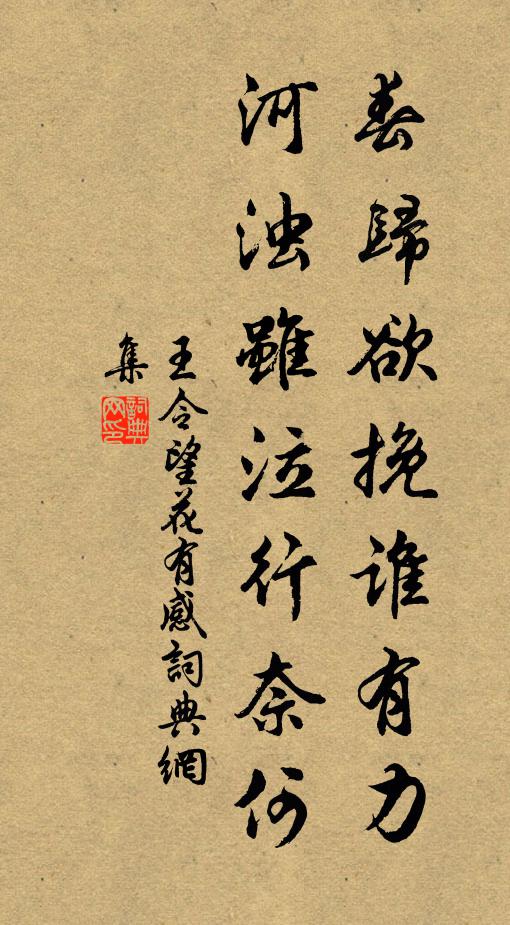 春歸欲挽誰有力
河濁雖泣行奈何
王令望花有感詞典網
集
詞典網印